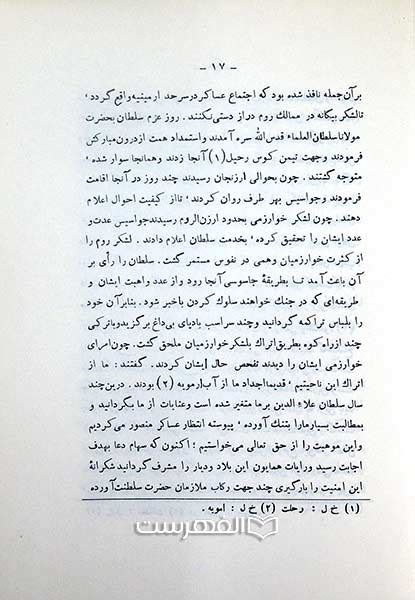 ـ ۱۷ ـ
برآن جمله نافذ شده بود که اجتماع عساکر درسرحد ارمینیه واقع گردد،
تالشکر بیگانه در ممالک روم دراز دستی نکنند. روز عزم سلطان بحضرت
مولانا سلطان‌العلماء قدس‌الله سره آمدند واستمداد همت ازدرون مبارکش
فرمودند وجهت تیمن کوس رحیل(۱) آنجا زدند وهمانجا سوار شده،
متوجه گشتند. چون بحوالی ارزنجان رسیدند چند روز در آنجا اقامت
فرمودند وجواسیس بهر طرف روان کردند، تااز کیفیت احوال اعلام
دهند. چون لشکر خوارزمی بحدود ارزن‌الروم رسیدند جواسیس عدت و
عدد ایشان را تحقیق کرده، بخدمت سلطان اعلام دادند. لشکر روم را
از کثرت خوارزمیان وهمی در نفوس مستمر گشت. سلطان را رأی بر
آن باعث آمد تا بطریقهٔ جاسوسی آنجا رود واز عدد واهبت ایشان و
طریقه‌ای که در جنگ خواهند سلوک کردن باخبر شود. بنابرآن خود
را بلباس تراکمه گردانید وچند سراسب بادپای بی‌داغ برگزید وباترکی
چند ازراه کوه بطریق اتراک بلشکر خوارزمیان ملحق گشت. چون امرای
خوارزمی ایشان را دیدند تفحص حال ایشان کردند. گفتند: ما از
اتراک این ناحیتیم، قدیما اجداد ما از آب ارمویه (۲) بودند. درین چند
سال سلطان علاء الدین برما متغیر شده است وعنایات از ما بگردانید و
بمطالبت بسیار مارا بتنگ آورده، پیوسته انتظار عساکر منصور می‌کردیم
و این موهبت را از حق تعالی می‌خواستیم؛ اکنون که سهام دعا بهدف
اجابت رسید ورایات همایون این بلاد ودیار را مشرف گردانید شکرانهٔ
این امنیت را بارگیری چند جهت رکاب ملازمان حضرت سلطنت آورده
(۱) خ ل : رحلت (۲) خ ل : امویه .
الفهرست